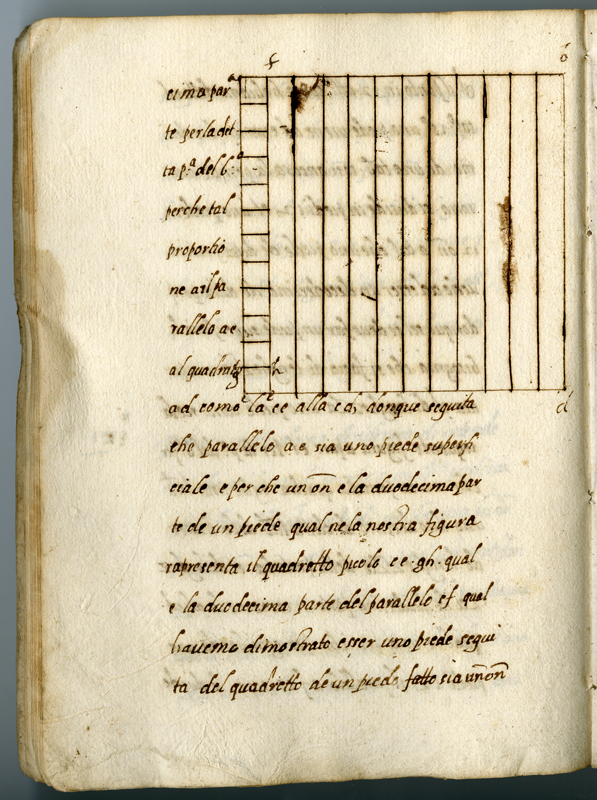 f b
a
cima par
te per la det
ta p.ª del 6.º
perche tal
proportio
ne a il pa
rallelo a e
al quadrato
g h
c e d
ad como la ce alla cd, donque seguita
che parallelo a e sia uno piede superfi
ciale e per che un on e la duodecima par
te de un piede qual ne la nostra figura
rapresenta il quadretto picolo c e . gh . qual
e la duodecima parte del parallelo ef quel
havemo dimostrato esser uno piede segui
ta del quadretto de un piedo fatto sia un on